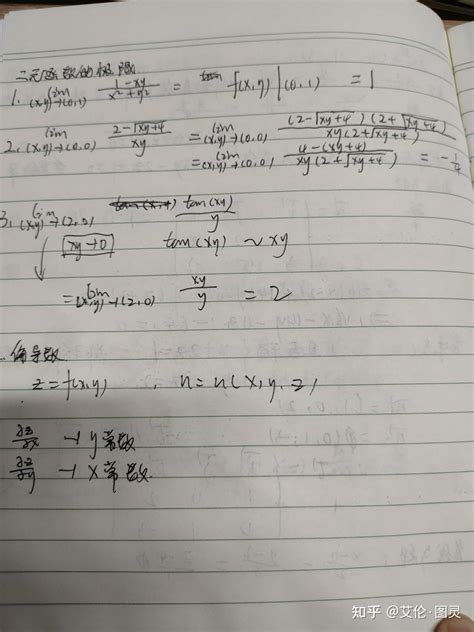 二元函数的极限
1. lim (x,y)→(0,1) (1-xy)/(x²+y²) = f(x,y)|(0,1) = 1
2. lim (x,y)→(0,0) (2-√(xy+4))/(xy) = lim (x,y)→(0,0) ((2-√(xy+4))(2+√(xy+4)))/(xy(2+√(xy+4)))
= lim (x,y)→(0,0) (4-(xy+4))/(xy(2+√(xy+4))) = -1/4
3. lim (x,y)→(2,0) tan(xy)/y
xy→0 tan(xy) ~ xy
= lim (x,y)→(2,0) xy/y = 2
偏导数
z=f(x,y) , u=u(x,y,z)
∂z/∂x → y常数
∂z/∂y → x常数.
知乎 @艾伦·图灵